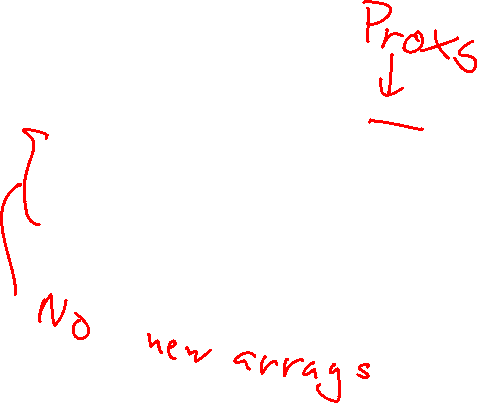 Proxs
No new arrays